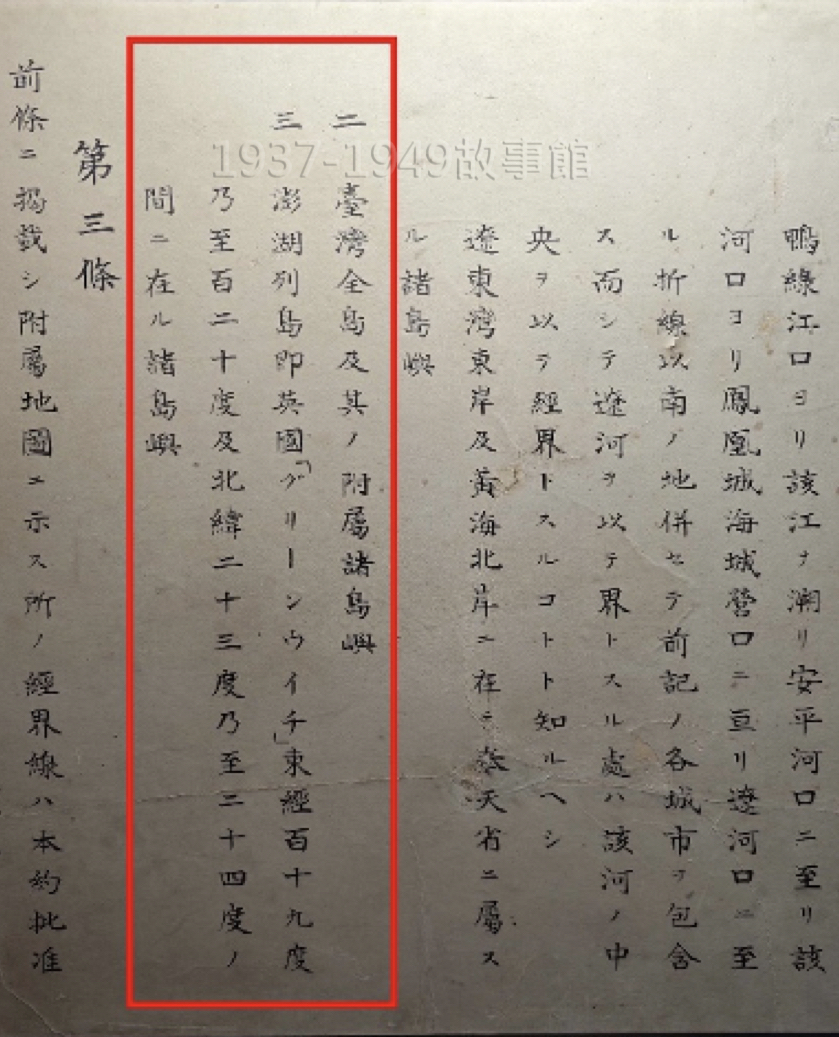 鴨綠江口ヨリ該江ヲ溯リ安平河口ニ至リ該
河口ヨリ鳳凰城海城營口ニ亘リ遼河口ニ至
ル折線以南ノ地併セテ前記ノ各城市ヲ包含
ス而シテ遼河ヲ以テ界トスル處ハ該河ノ中
央ヲ以テ經界トスルコトト知ルヘシ
遼東灣東岸及黃海北岸ニ在テ奉天省ニ屬ス
ル諸島嶼
二 臺灣全島及其ノ附屬諸島嶼
三 澎湖列島即英國「グリーンウイチ」東經百十九度
乃至百二十度及北緯二十三度乃至二十四度ノ
間ニ在ル諸島嶼
第三條
前條ニ揭載シ附屬地圖ニ示ス所ノ經界線ハ本約批准
1937-1949故事館